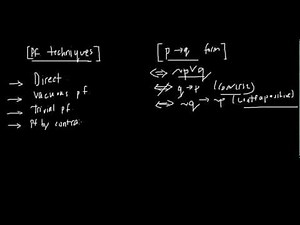 [Pf techniques]
→ Direct
→ Vacuous pf.
→ Trivial pf.
→ Pf by contra
[p → q form]
⇔ ~p∨q
⇎ q → p (converse)
⇔ ~q → ~p (contrapositive)